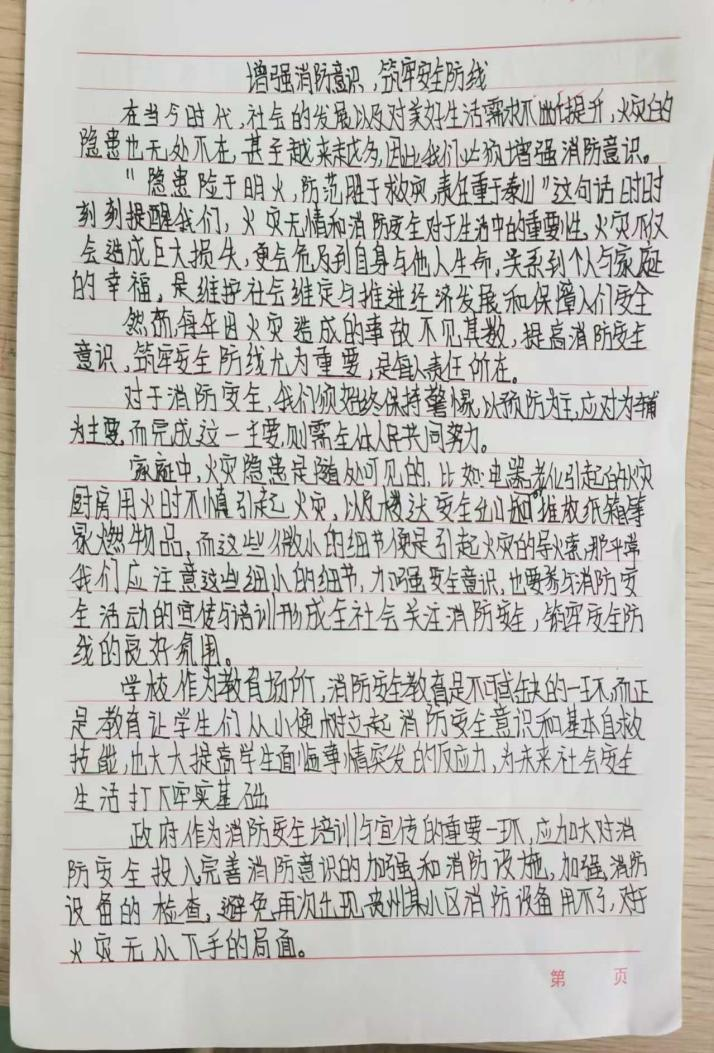 增强消防意识，筑牢安全防线
在当今时代，社会的发展以及对美好生活需求不断提升，火灾的
隐患也无处不在，甚至越来越多，因此我们必须增强消防意识。
“隐患险于明火，防范胜于救灾，责任重于泰山”这句话时时
刻刻提醒我们，火灾无情和消防安全对于生活中的重要性，火灾不仅
会造成巨大损失，更会危及到自身与他人生命，关系到个人与家庭
的幸福，是维护社会维定与推进经济发展和保障人们安全
然而每年因火灾造成的事故不见其数，提高消防安全
意识，筑牢安全防线尤为重要，是每人责任所在。
对于消防安全，我们须始终保持警惕，以预防为主，应对为辅
为主要，而完成这一主要，则需全体人民共同努力。
家庭中，火灾隐患是随处可见的，比如：电器老化引起的火灾
厨房用火时不慎引起火灾，以及楼达安全出口堆放纸箱等
易燃物品，而这些微小的细节便是引起火灾的导火索，那平常
我们应注意这些细小的细节，加强安全意识，也要参与消防安
全活动的宣传与培训形成全社会关注消防安全，筑牢安全防
线的良好氛围。
学校作为教育场所，消防安全教育是不可或缺的一环，而正
是教育让学生们从小便树立起消防安全意识和基本自救
技能，也大大提高学生面临事情突发的反应力，为未来社会安全
生活打下牢实基础
政府作为消防安全培训与宣传的重要一环，应加大对消
防安全投入，完善消防意识的加强和消防设施，加强消防
设备的检查，避免再次出现贵州某小区消防设备用不了，对于
火灾无从下手的局面。
第 页